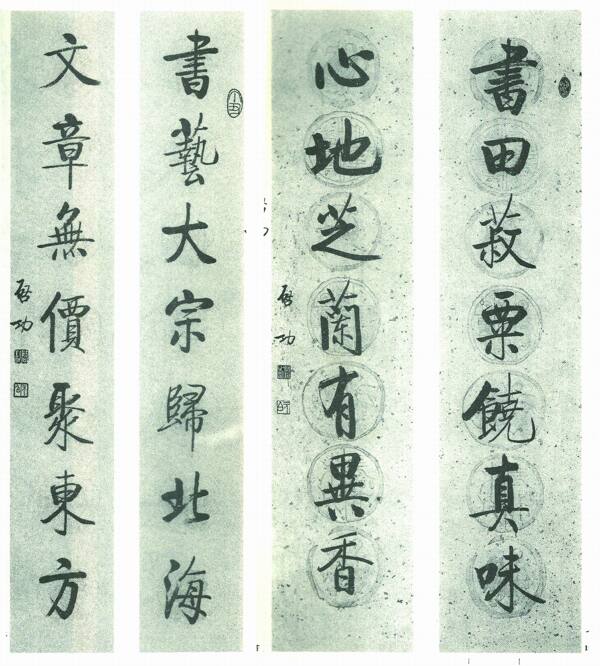 書田菽粟饒真味
心地芝蘭有異香
啓功
書藝大宗歸北海
文章無價聚東方
啓功